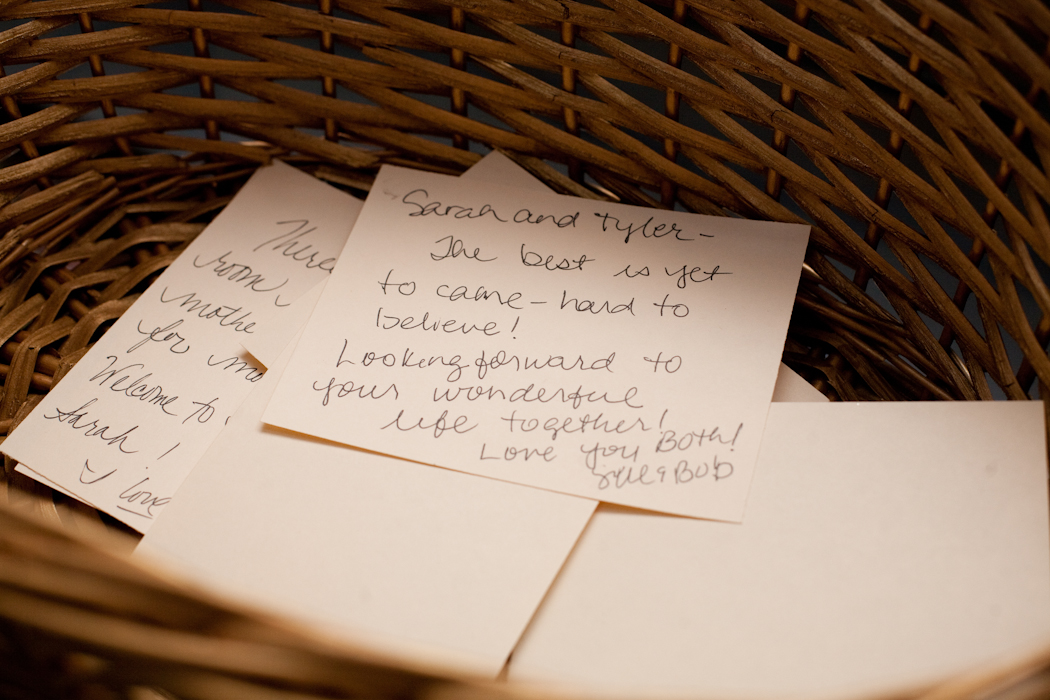 Sarah and Tyler-
The best is yet
to come - hard to
believe!
Looking forward to
your wonderful
life together!
Love you Both!
& Bob
There
room,
mothe
for mo
Welcome to
Sarah!
I love